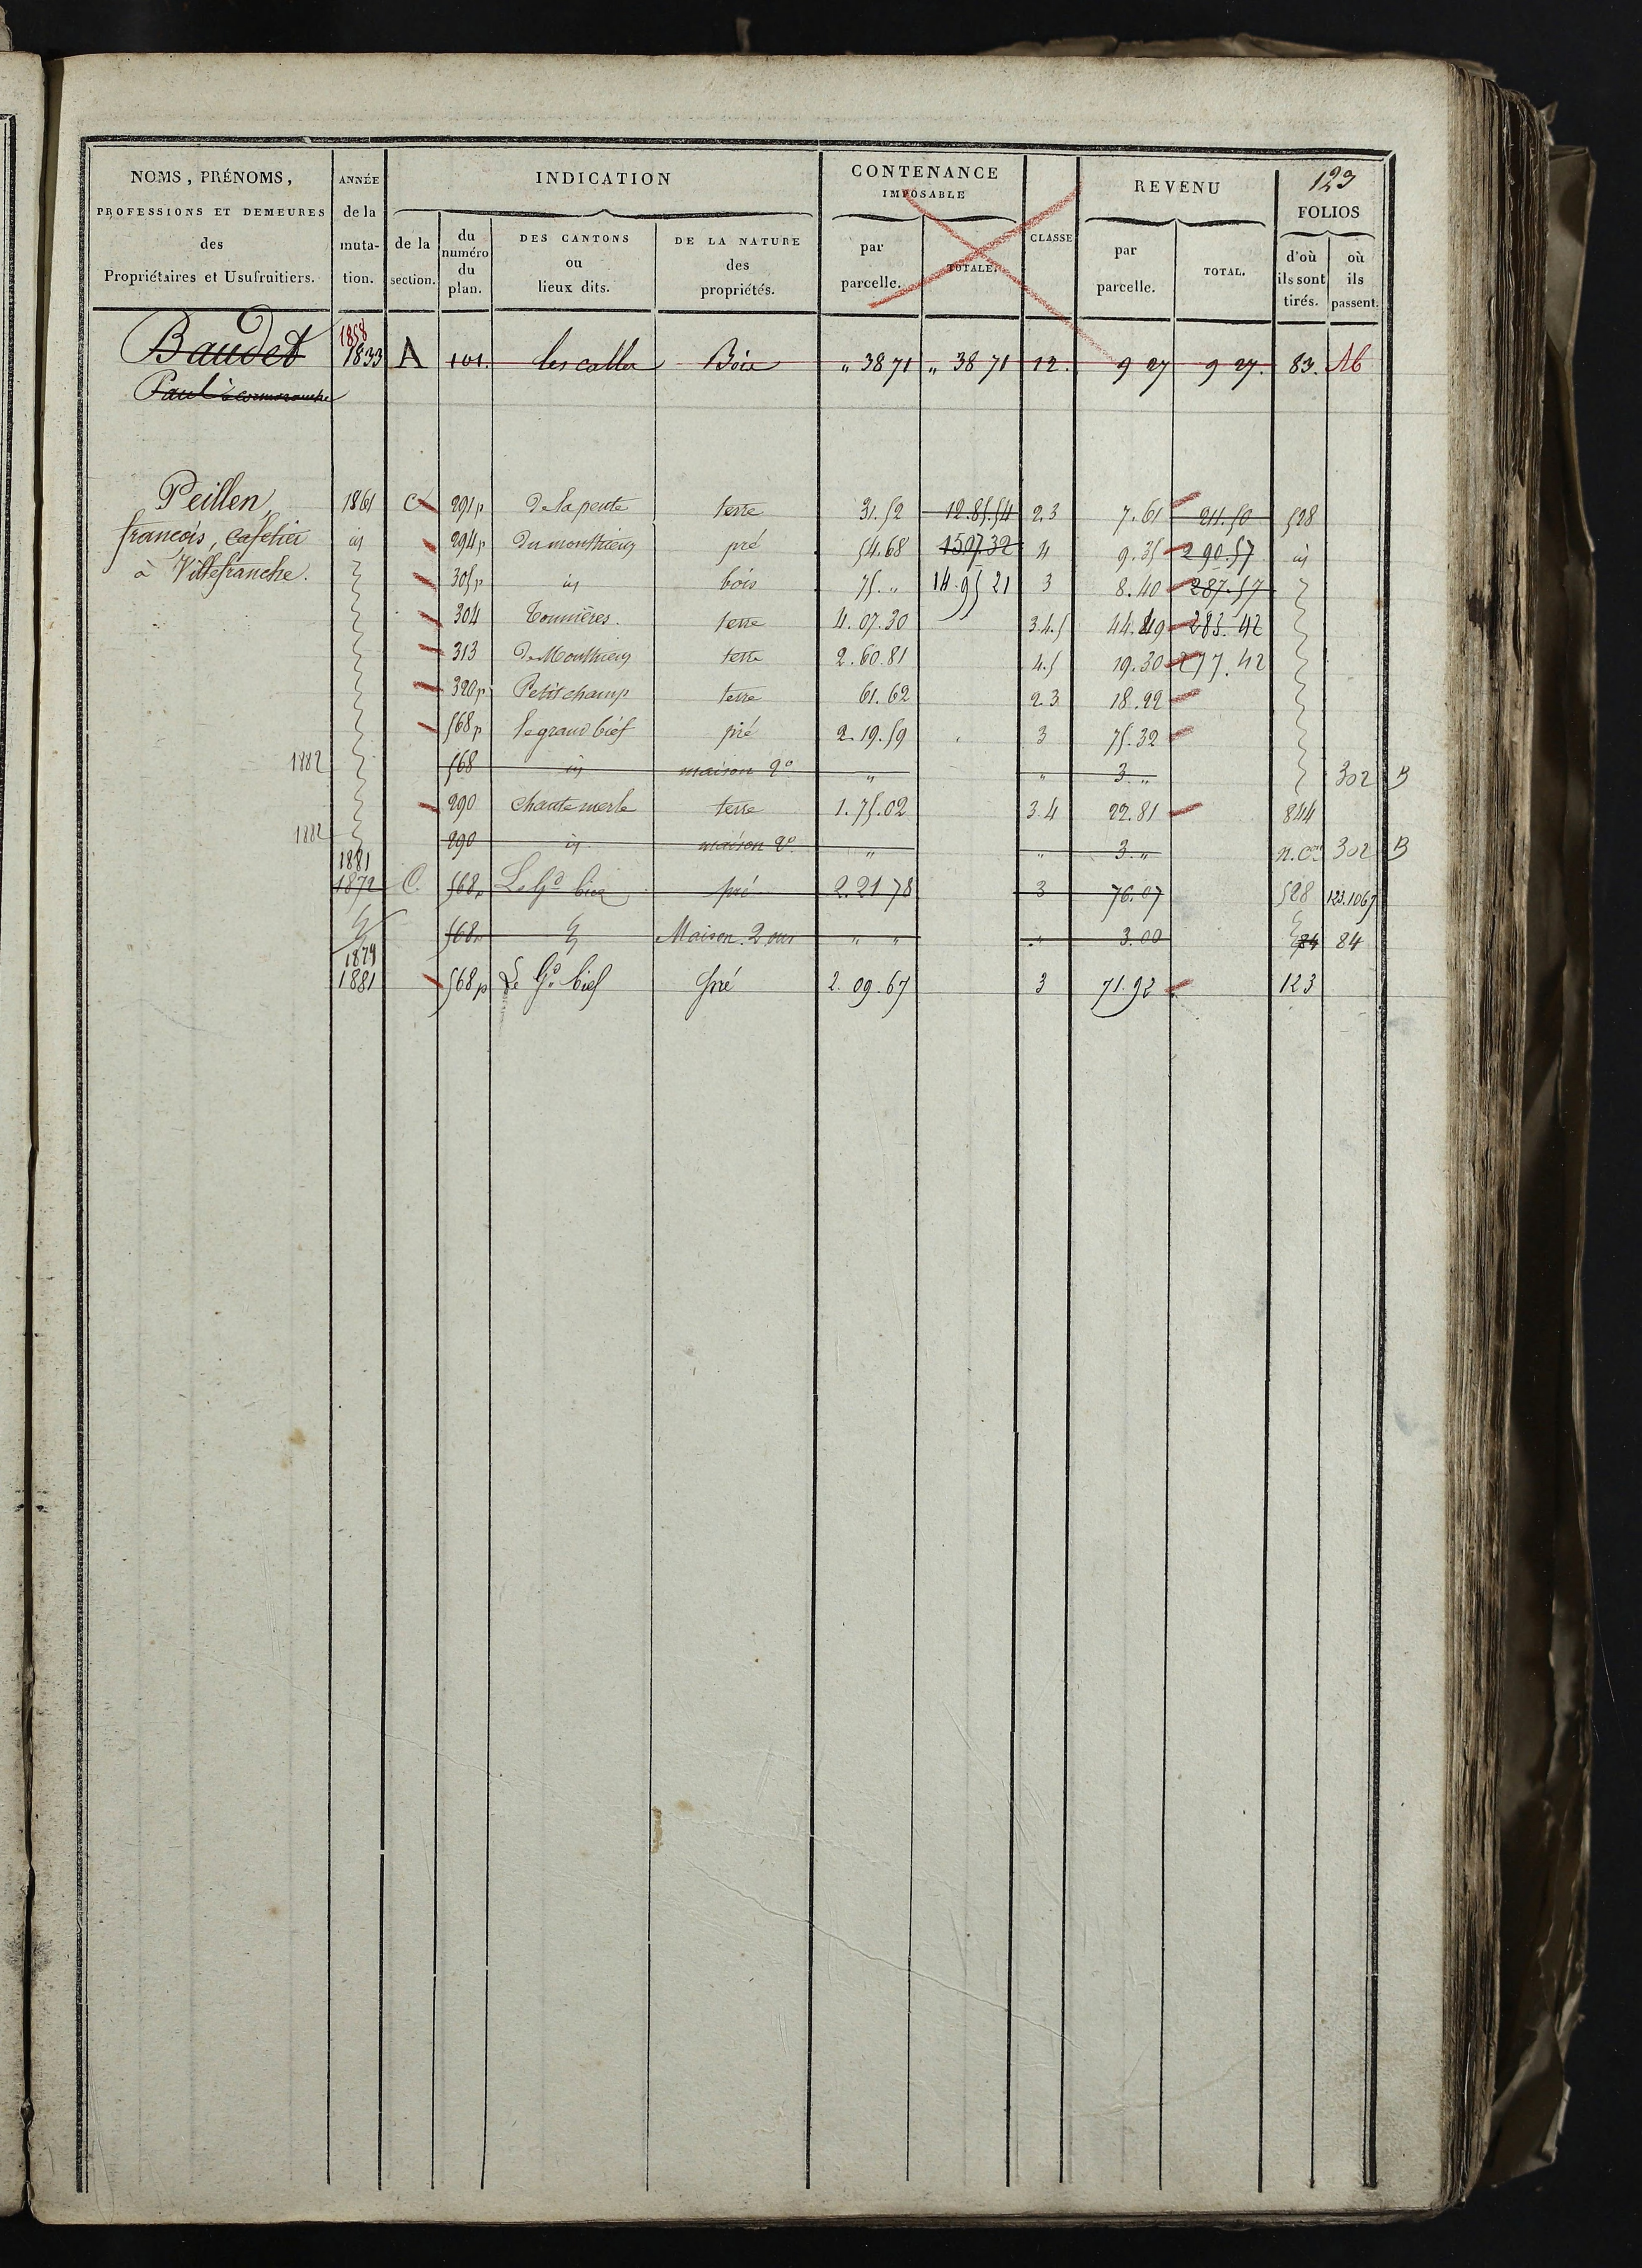 123
NOMS, PRÉNOMS, PROFESSIONS ET DEMEURES des Propriétaires et Usufruitiers. | ANNÉE de la muta-tion. | INDICATION | CONTENANCE IMPOSABLE | CLASSE | REVENU | FOLIOS
de la section. | du numéro du plan. | DES CANTONS ou lieux dits. | DE LA NATURE des propriétés. | par parcelle. | TOTALE. | par parcelle. | TOTAL. | d'où ils sont tirés. | où ils passent.
1858
Baudet 1833 A 101. les calles Bois " 38 71 " 38 71 12. 9 27 9 27. 83. Ab
Paul à cormoranche
Peillen, 1861 C 291p De la pente terre 31.52 12.85.54 2.3 7.61 211.50 528
françois, cafetier id 294p Du monthieux pré 54.68 1507.32 4 9.35 290.57 id
à Villefranche. 305p id bois 75." 14.95 21 3 8.40 287.57
304 Tonnières. terre 4.07.30 3.4.5 44.49 283.42
313 De Monthieux terre 2.60.81 4.5 19.30 277.42
320p Petit champ terre 61.62 2.3 18.22
568p le grand bief pré 2.19.59 3 75.32
1882 568 id maison 2e " " 3." 302 B
290 Chante merle terre 1.75.02 3.4 22.81 844
1882 290 id maison 2e " " 3." n.con 302 B
1881
1872 C. 568p Le Gd bief pré 2.21 78 3 76.07 528 123.1067
568p Maison. 2 ouv " " " 3.00 84 84
1879
1881 568p Le Gd bief pré 2.09.67 3 71.92 123